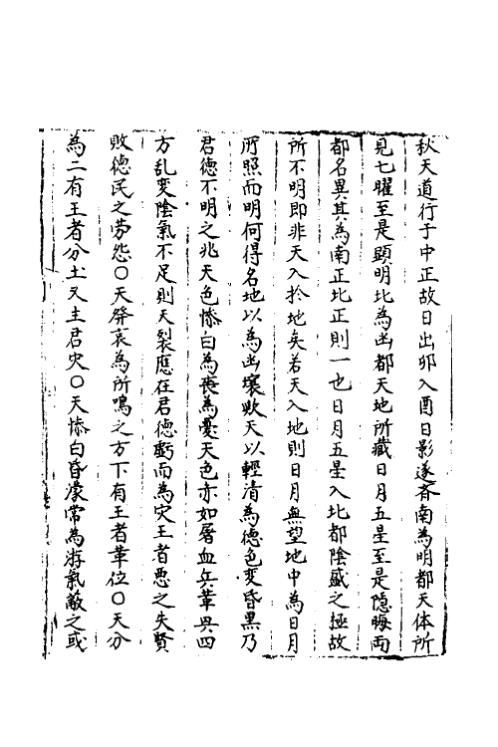 秋天道行于中正故日出卯入酉日影遂斉南為明都天体所
見七曜至是顕明比為幽都天地所藏日月五星至是隠晦両
都名異其為南正比正則一也日月五星入比都陰盛之極故
所不明即非天入扵地矣若天入地則日月無望地中為日月
所照而明何得名地以為幽壤欤天以輕清為德色变昏黒乃
君德不明之兆天色惨白為喪為憂天色亦如屠血兵革與四
方乱変陰氣不足則天裂應在君德虧而為灾王者悪之失賢
敗德民之劳怨〇天發哀為所鳴之方下有王者革位〇天分
為二有王者分土又主君灾〇天惨白昏濛常為游氣敵之或